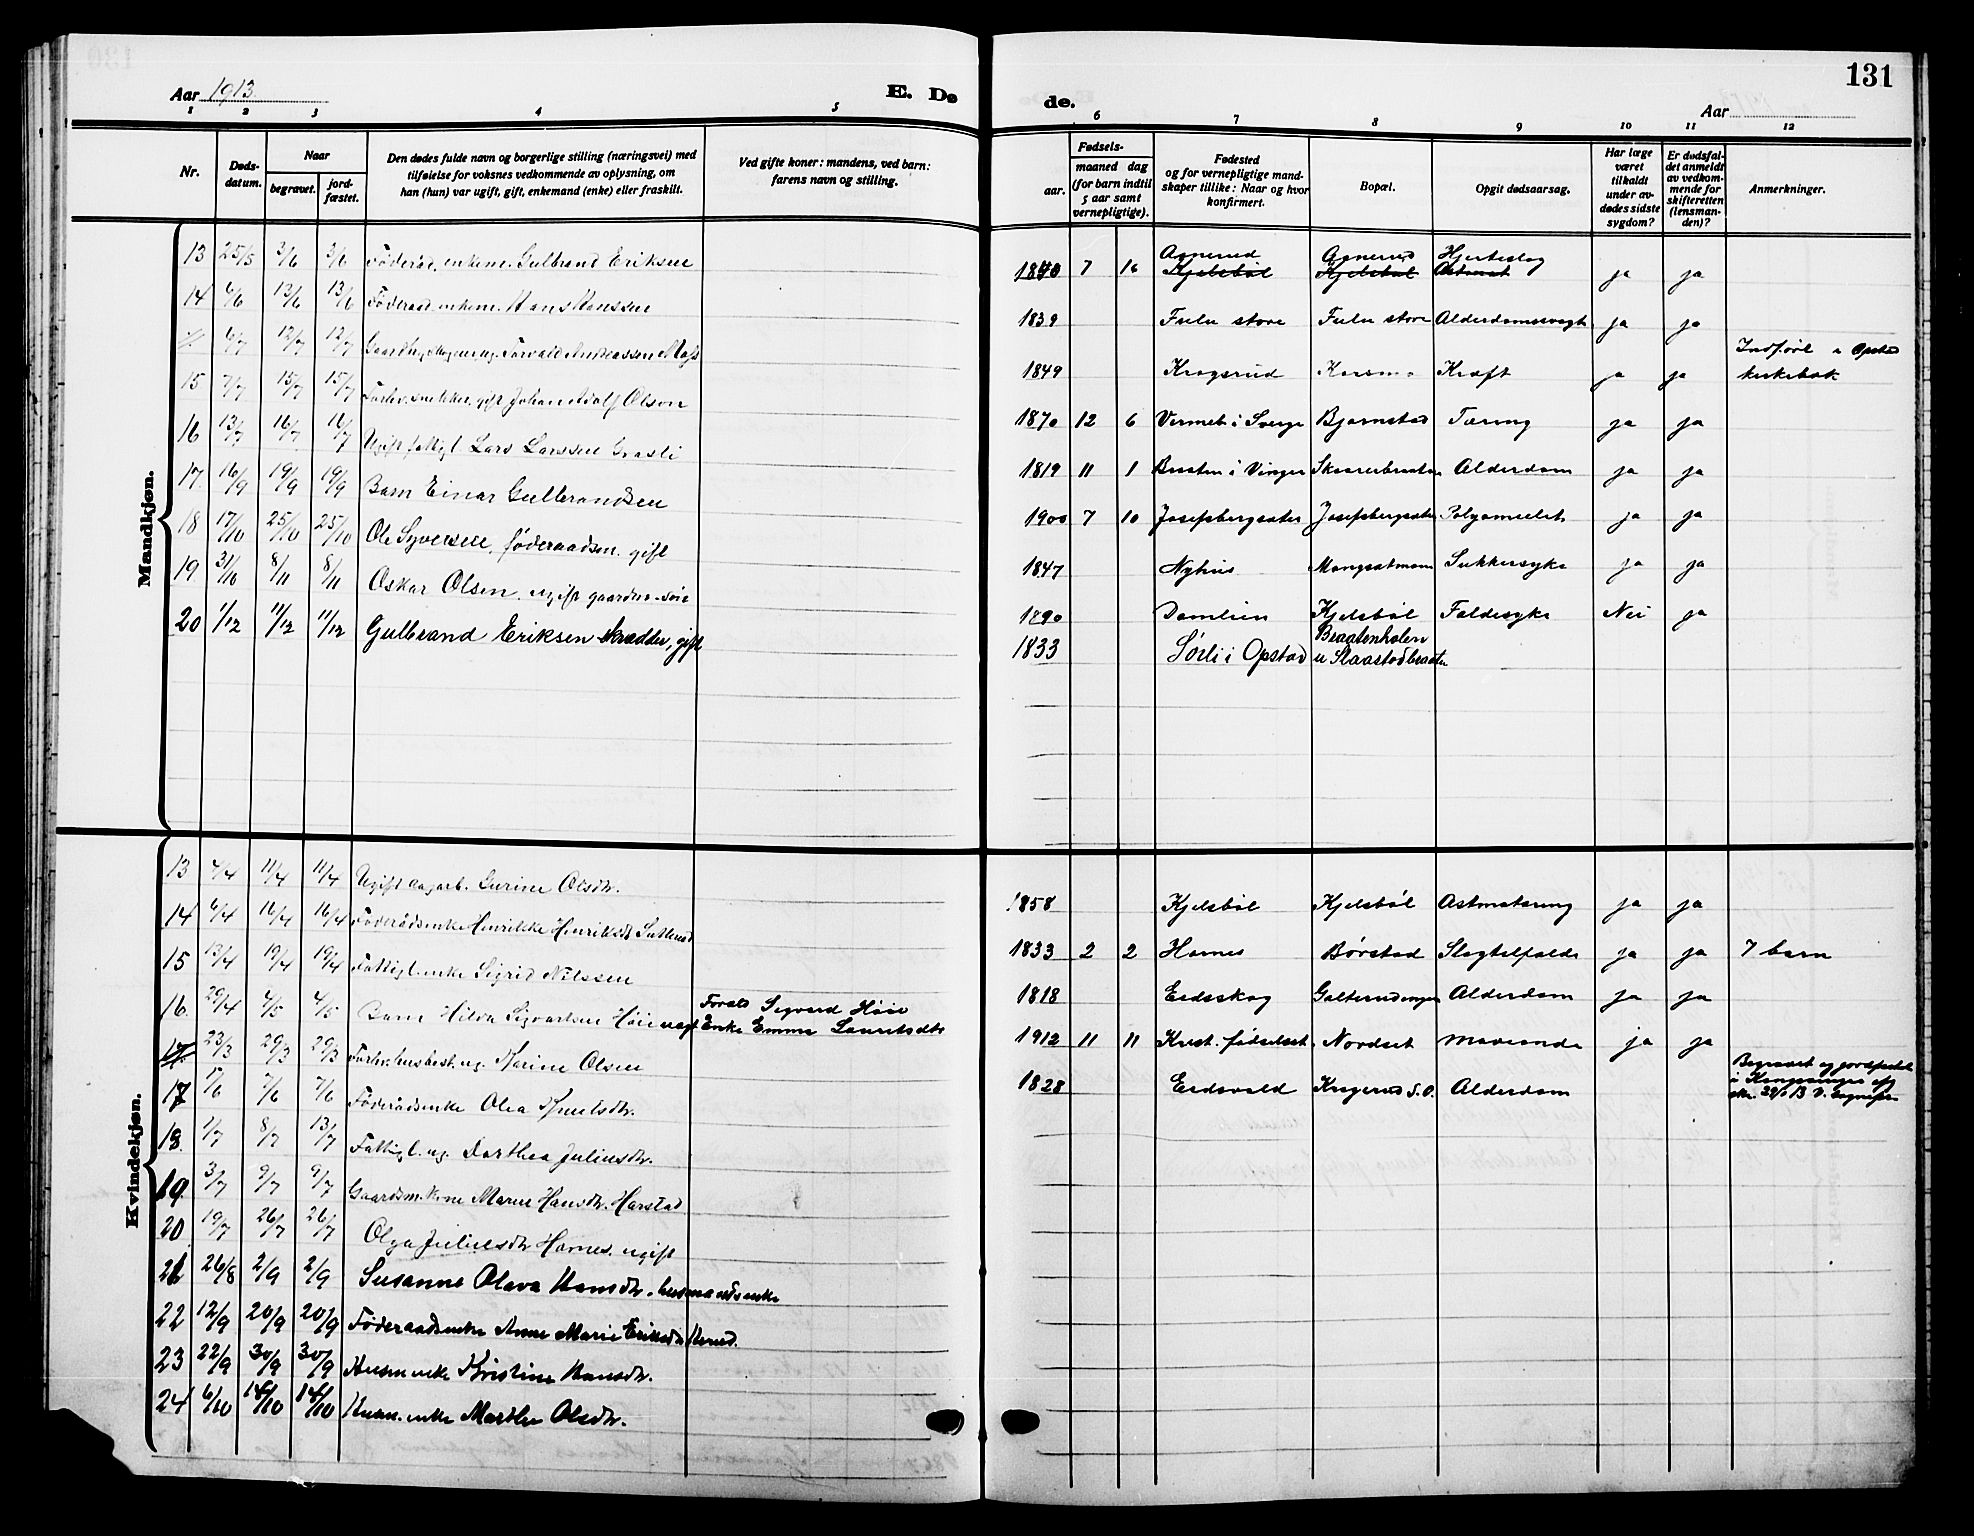 131
Aar 1913.
E. Dø
de.
Aar
1 2 3 4 5
6 7 8 9 10 11 12
Nr.
Døds-
datum.
Naar
begravet.
jord-
fæstet.
Den dødes fulde navn og borgerlige stilling (næringsvei) med
tilføielse for voksnes vedkommende av oplysning, om
han (hun) var ugift, gift, enkemand (enke) eller fraskilt.
Ved gifte koner: mandens, ved barn:
farens navn og stilling.
Fødsels-
aar.
maaned dag
(for barn indtil
5 aar samt
vernepligtige).
Fødested
og for vernepligtige mand-
skaper tillike: Naar og hvor
konfirmert.
Bopæl.
Opgit dødsaarsag.
Har læge
været
tilkaldt
under av-
dødes sidste
sygdom?
Er dødsfal-
det anmeldt
av vedkom-
mende for
skifteretten
(lensman-
den)?
Anmerkninger.
Mandkjøn.
13 25/5 3/6 3/6 Føderåd. enkem. Gulbrand Eriksen
14 4/6 13/6 13/6 Føderaad enkem. Hans Hanssen
6/7 12/7 12/7 Torvald Andreassen
15 7/7 15/7 15/7 Forhv. snekker, gift Johan Adolf Olson
16 13/7 16/7 16/7 Ugift fattigl. Lars Larssen Grasli
17. 16/9 19/9 19/9 Barn Einar Gulbrandsen
18 17/10 25/10 25/10 Ole Syversen, føderaadsm. gift
19 31/10 8/11 8/11 Oskar Olsen, ugift gaardm. søn
20 1/12 11/12 11/12 Gulbrand Eriksen skrædder, gift
Agnerud Agnerud Hjerteslag
1840 7 16 Kjelsbøl Kjelsbøl Astmat ja ja
1839 Fulu store Fulu store Alderdomssvagh ja ja
Indført i Opstad
1849 Krogsrud Kræft ja ja kirkebok
1870 12 6 i Sverge Bjørnstad Tæring ja ja
1819 11 1 Braaten i Vinger Skaarerbraaten Alderdom ja ja
1900 7 10 Josefsbergsæter Josefsbergsæter ja ja
1847 Nyhus Sukkersyke ja ja
1890 Damlien Kjelsbøl Faldesyke Nei ja
1833 Sørli i Opstad Braatenholen
u Slaastadbraaten
Kvindekjøn.
13 4/4 11/4 11/4 Ugift dagarb. Gurine Olsdtr.
14 6/4 16/4 16/4 Føderådsenke Henrikke Henriksdtr
15 13/4 19/4 19/4 Fattigl. enke Sigrid Nilssen
16. 29/4 4/5 4/5 Barn Hilda Sigvartsen Høie Forald. Sigvard Høie
Enke Emma Lauritsdtr
17. 23/3 29/3 29/3 Forhv. husbest. ug. Karine Olsen
17 1/6 7/6 7/6 Føderådsenke Olea Knutsdtr.
18 1/7 8/7 13/7 Fattigl. ug. Dorthea Juliusdtr.
19 3/7 9/7 9/7 Gaardm. kone Maren Hansdtr. Harstad
20 19/7 26/7 26/7 Olga Juliusdtr Harnes. ugift
21 26/8 2/9 2/9 Susanne Olava Hansdtr. husmandsenke
22 12/9 20/9 20/9 Føderaadsenke Anne Marie Eriksdtr
23 22/9 30/9 30/9 Husm. enke Kristine Hansdtr.
24 6/10 14/10 14/10 Husm. enke Marthe Olsdtr.
1858 Kjelsbøl Kjelsbøl Astmatæring ja ja
1833 2 2 Harnes Børstad Slagtilfælde ja ja 7 barn
1818 Eidskog Alderdom ja ja
1912 11 11 Krist. fødselsst. Nordset ja ja
Begravet og jordfæstet
1828 Eidsvold Krogerud S.O. Alderdom i Kongsvinger